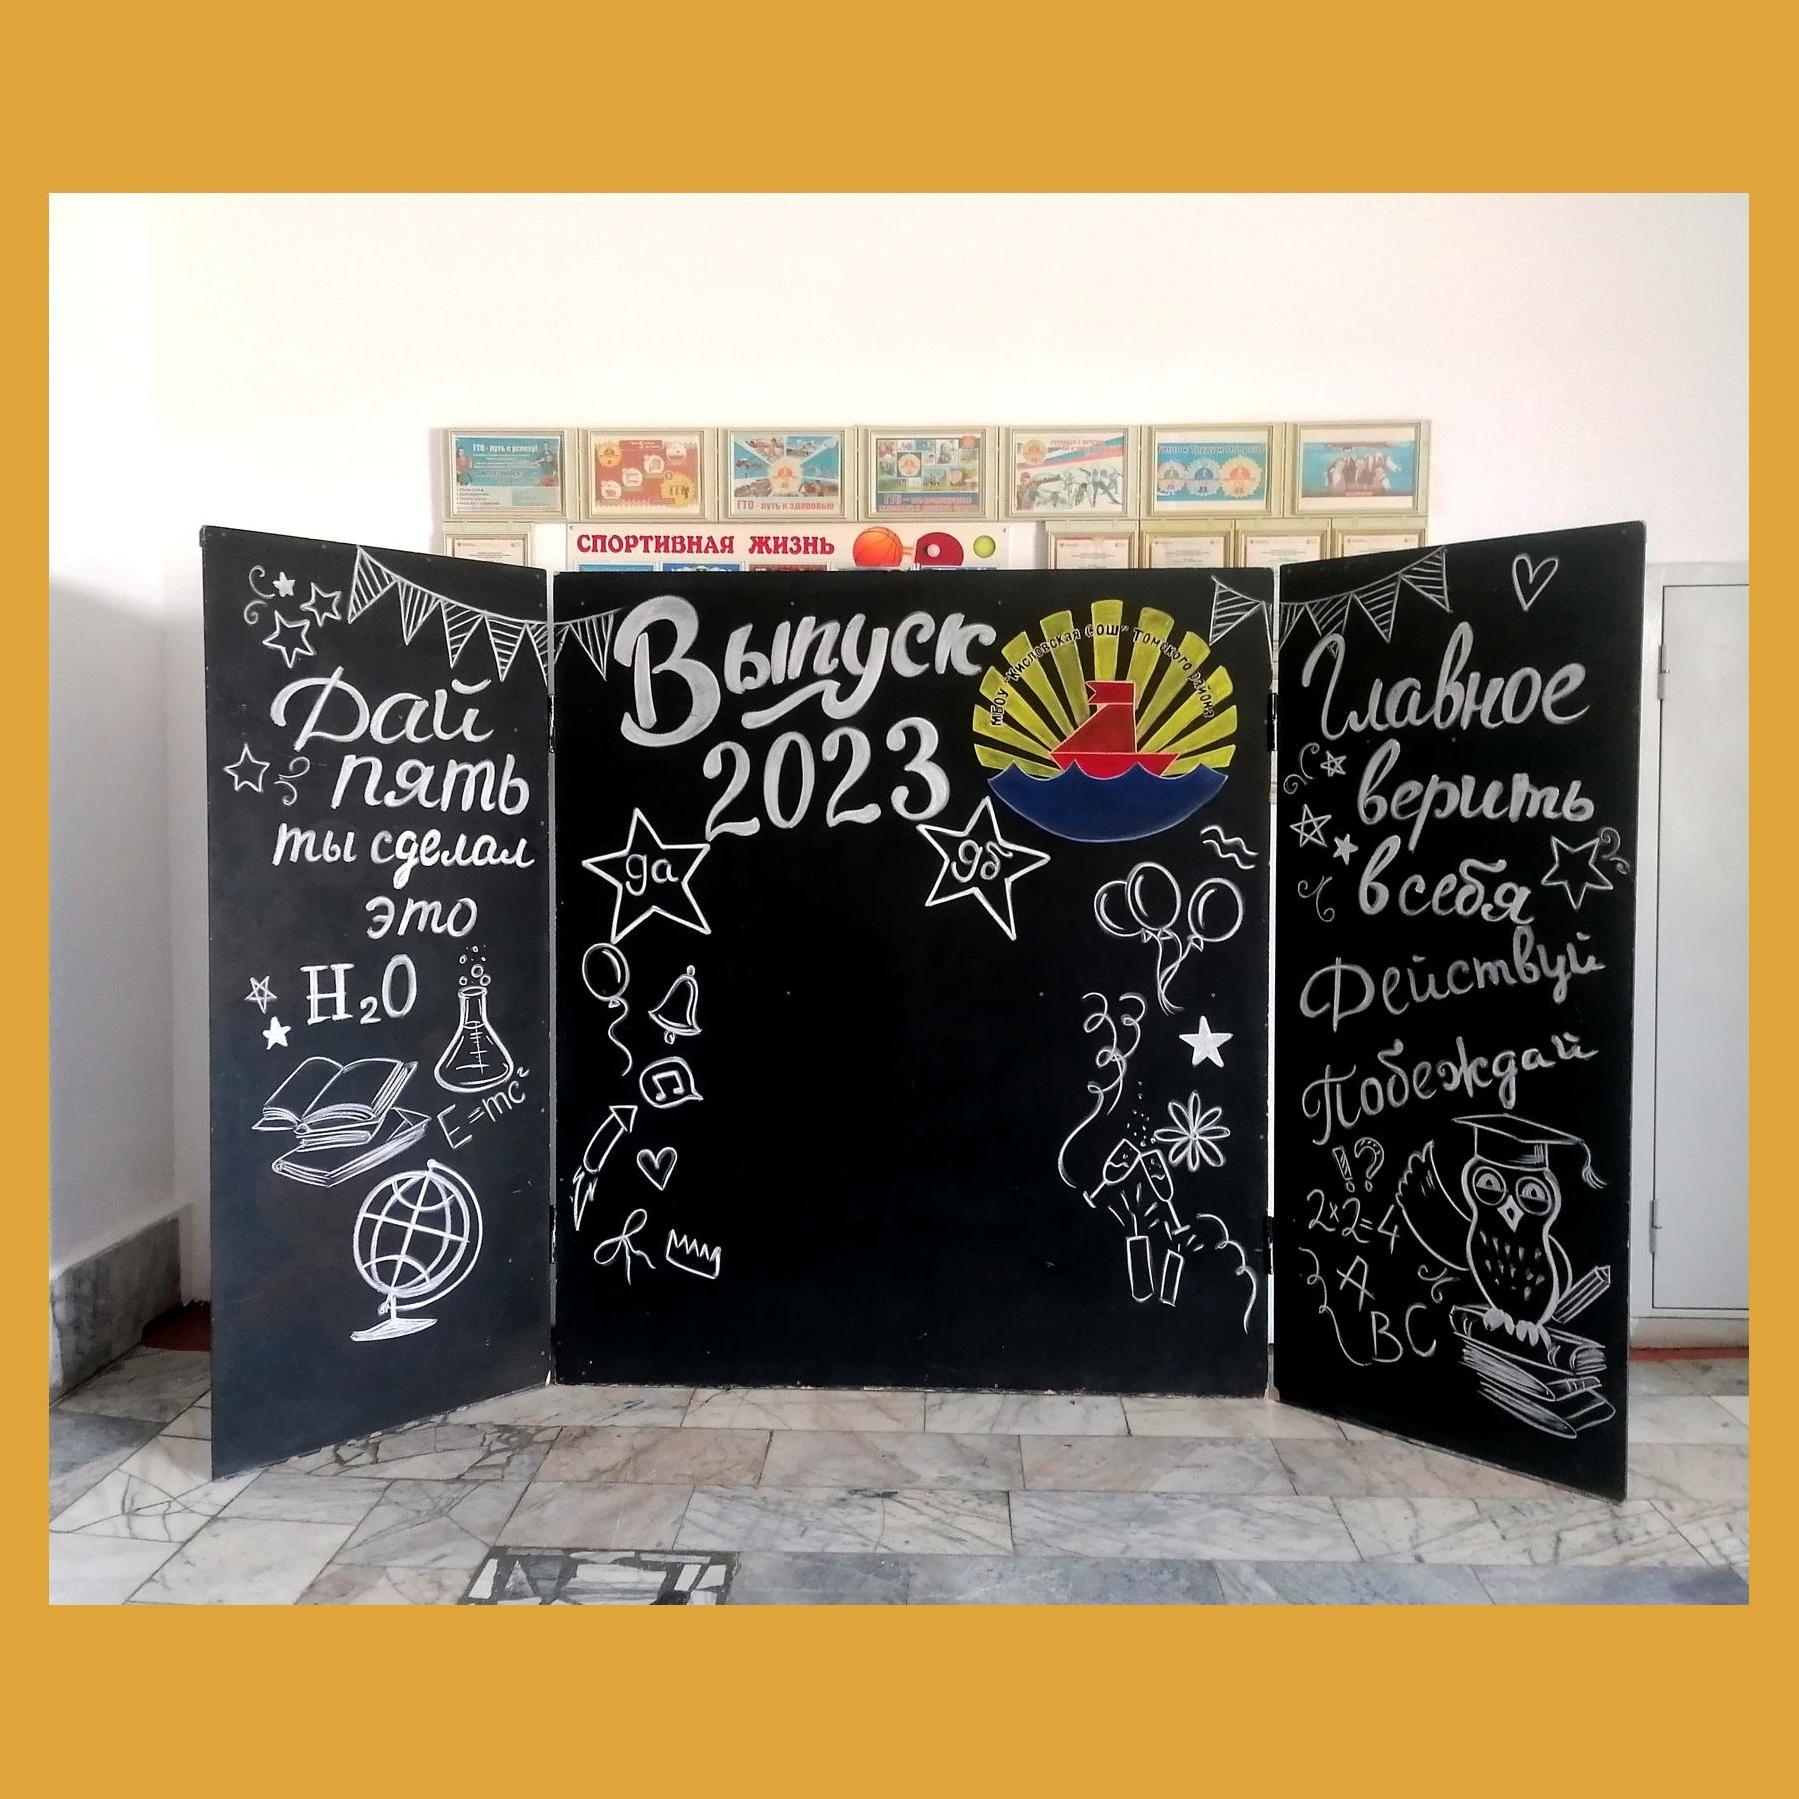 ГТО - путь к успеху!
ГТО - путь к здоровью
СПОРТИВНАЯ ЖИЗНЬ
Дай
пять
ты сделал
это
H₂O
E=mc²
Выпуск
2023
МБОУ "Кисловская СОШ" Томского района
9а
9б
Главное
верить
в себя
Действуй
Побеждай
!?
2×2=4
A
BC